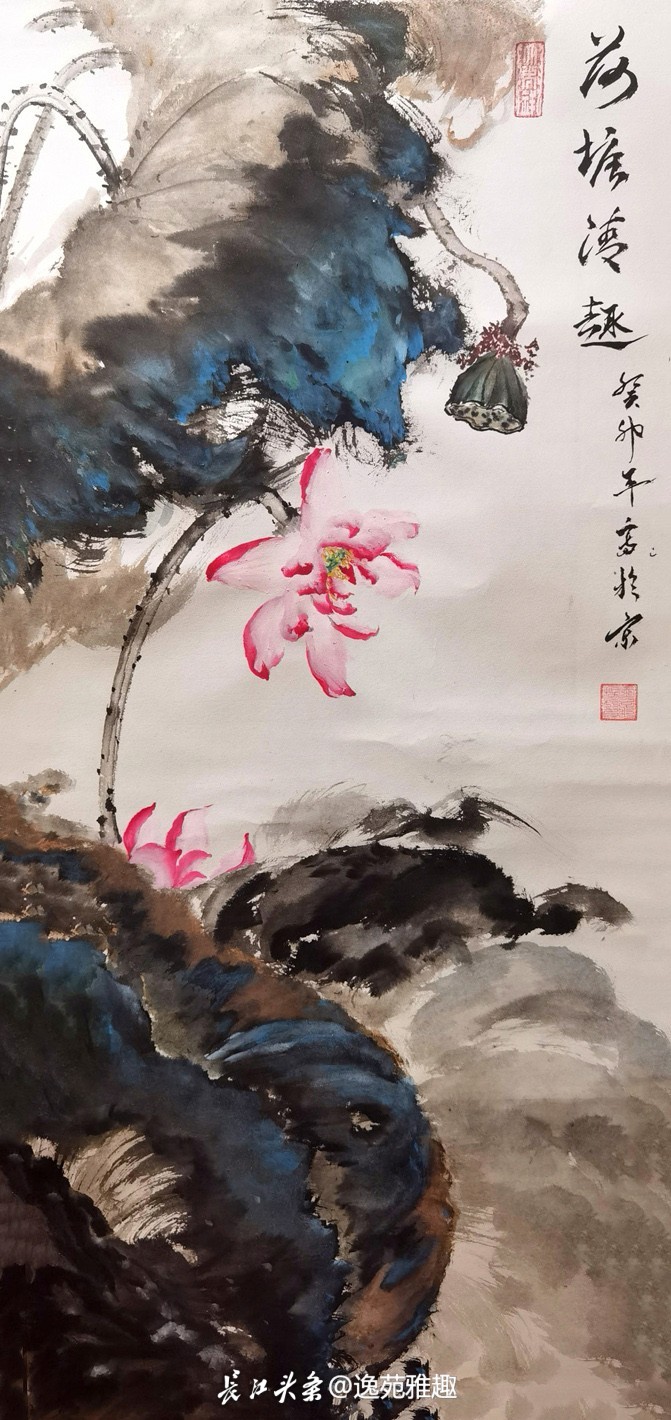 荷塘清趣
癸卯年写於京
长江头条@逸苑雅趣